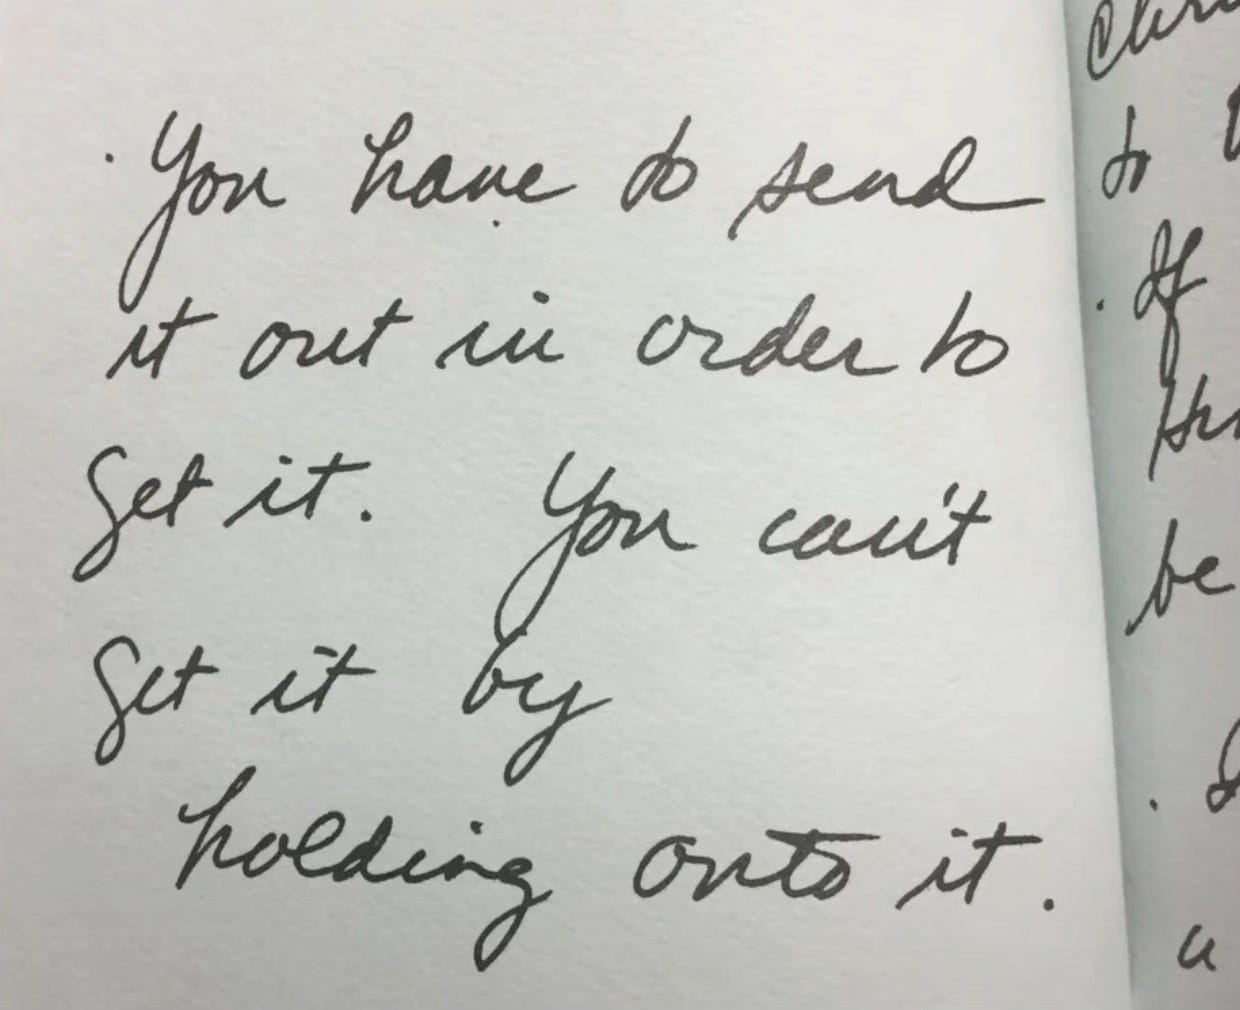 · You have to send
it out in order to
get it. You can't
get it by
holding onto it.
to
· If
be